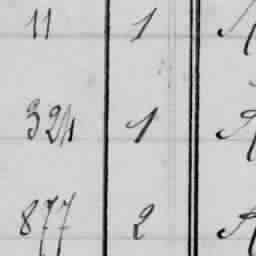 11 1
324 1
877 2